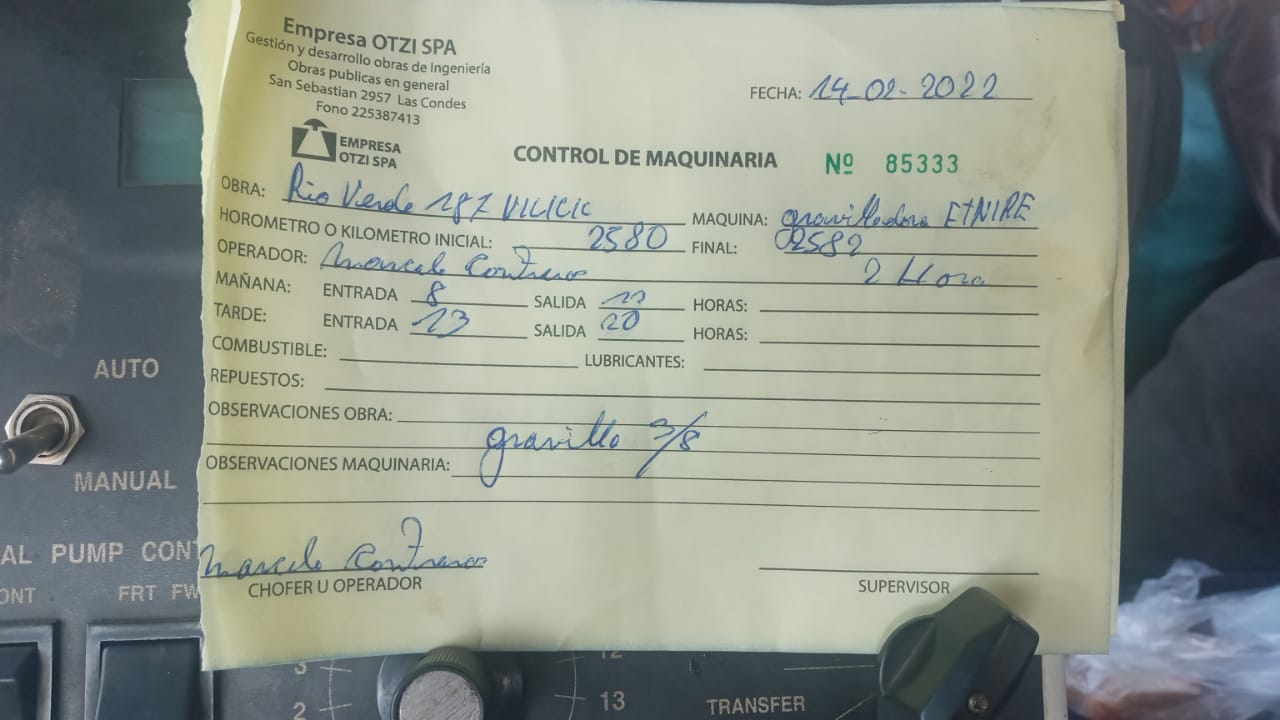 Empresa OTZI SPA
Gestión y desarrollo obras de Ingeniería
Obras publicas en general
San Sebastian 2957 Las Condes
Fono 225387413
EMPRESA
OTZI SPA
FECHA: 14-02-2022
CONTROL DE MAQUINARIA Nº 85333
OBRA: Rio Verde MAQUINA: gravilladora
HOROMETRO O KILOMETRO INICIAL: 2580 FINAL: 2582
OPERADOR: Marcelo Contreras 2 Hora
MAÑANA: ENTRADA 8 SALIDA HORAS:
TARDE: ENTRADA 13 SALIDA 20 HORAS:
COMBUSTIBLE: LUBRICANTES:
REPUESTOS:
OBSERVACIONES OBRA:
gravilla 3/8
OBSERVACIONES MAQUINARIA:
Marcelo Contreras
CHOFER U OPERADOR SUPERVISOR
AUTO
MANUAL
AL PUMP CONT
ONT FRT FW
3 12
2 13 TRANSFER